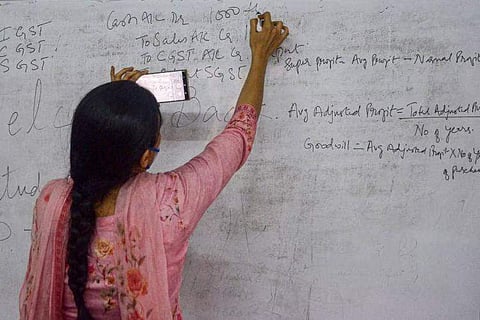 IGST.
CGST.
SGST
Cash A/C Dr 1000
To Sales A/C Cr
To CGST. A/C Cr
SGST
Super Profit = Avg Profit - Normal Profit
Avg Adjusted Profit = Total Adjusted
No of years.
Goodwill = Avg Adjusted Profit X No of
of purchase
el